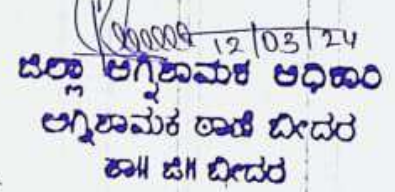 12/03/24
ಜಿಲ್ಲಾ ಅಗ್ನಿಶಾಮಕ ಅಧಿಕಾರಿ
ಅಗ್ನಿಶಾಮಕ ಠಾಣೆ ಬೀದರ
ತಾ॥ ಜಿ॥ ಬೀದರ